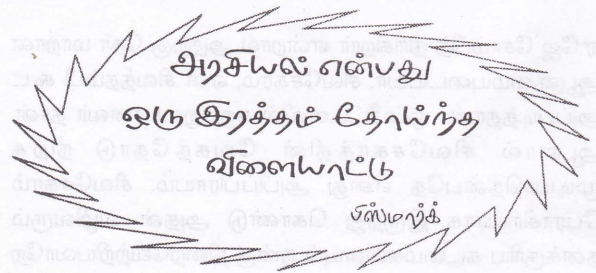 அரசியல் என்பது
ஒரு இரத்தம் தோய்ந்த
விளையாட்டு
பிஸ்மார்க்